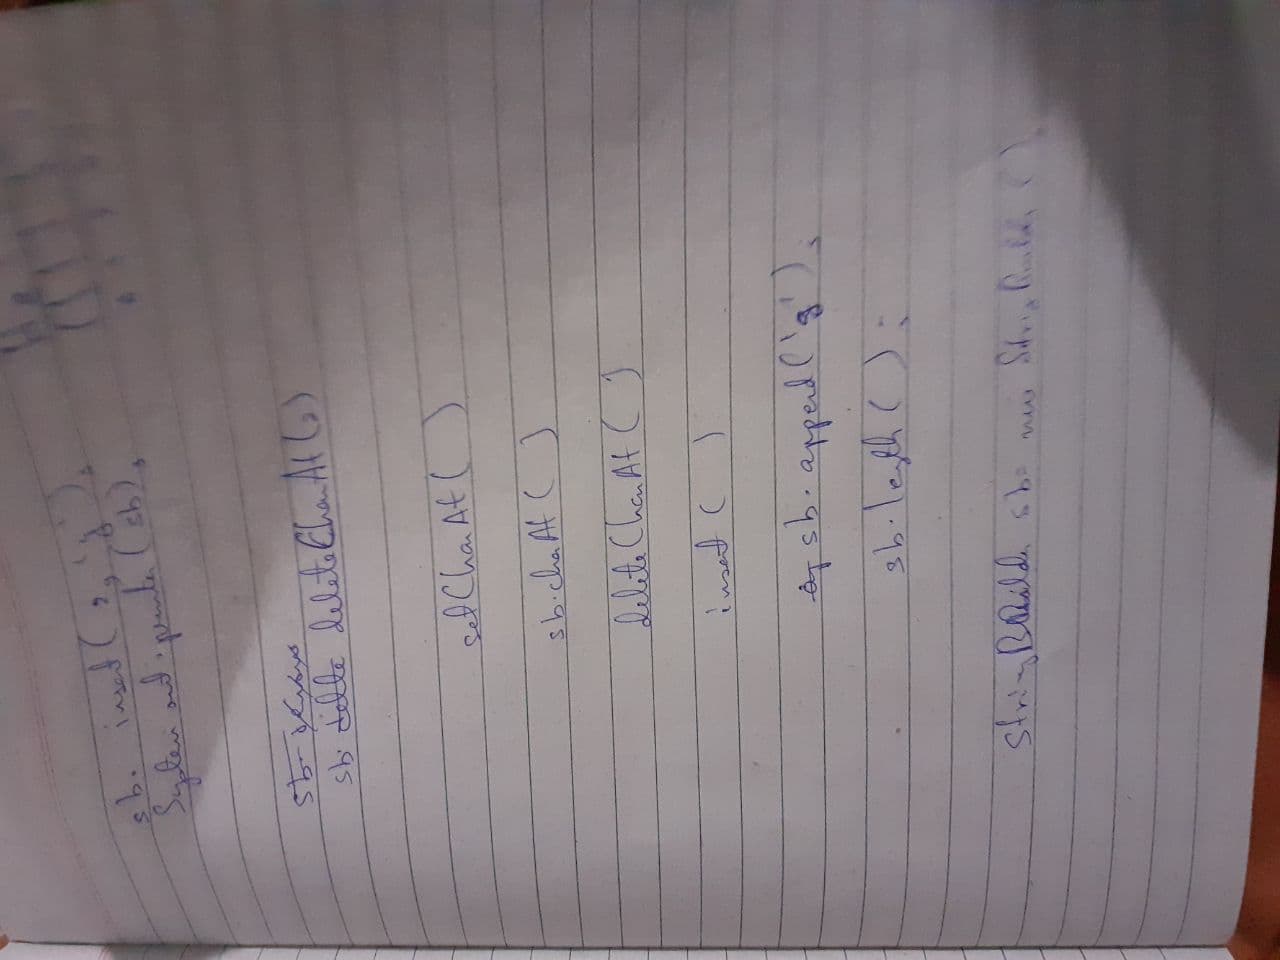 sb. insert ( 2, 'y' );
System out . println (sb);
sb. delete deleteCharAt (2)
setCharAt ( )
sb.charAt ( )
deleteCharAt ( )
insert ( )
sb. append ('g');
sb. length ( );
StringBuilder sb = new StringBuilder ( ).